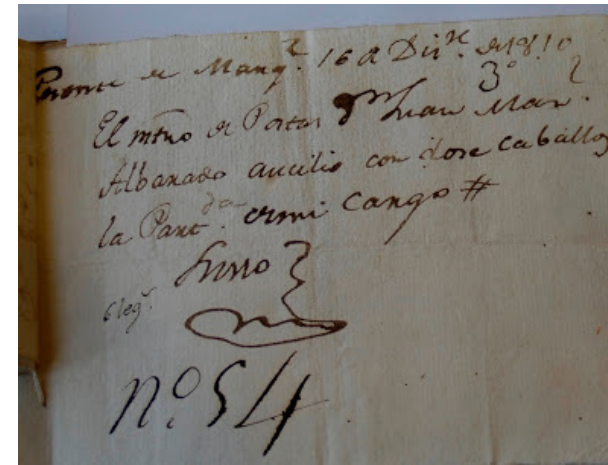 Puente de Marq.z 16 de Dir.e de 1810
3º
El mtro de Postas Dn Juan Man.l
Albarado aucilio con dose caballos
la Part.da de mi Cargo #
6 leg.s
nº. 54